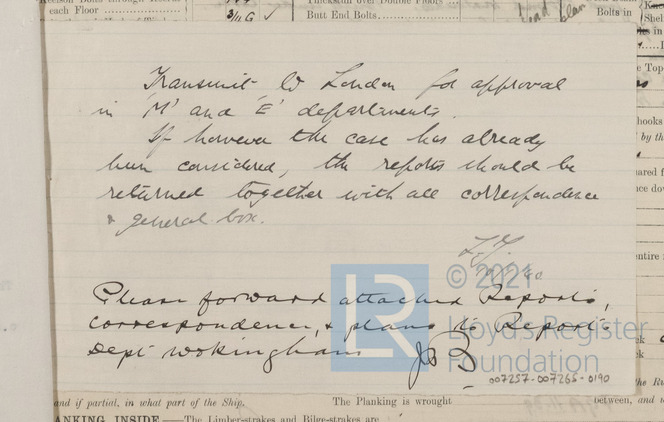 each Floor
3/11 G
Thickstuff over Double Floors
Butt End Bolts
Bolts in
Transmit to London for approval
in 'M' and 'E' departments.
If however the case has already
been considered, the reports should be
returned together with all correspondence
& general box.
© 2021
Please forward attached Reports,
correspondence, & plans to Reports
Dept Wokingham
JB
LR
Lloyd's Register
Foundation
007257-007266-0190
and if partial, in what part of the Ship.
The Planking is wrought
between, and
ANKING INSIDE — The Limber-strakes and Bilge-strakes are